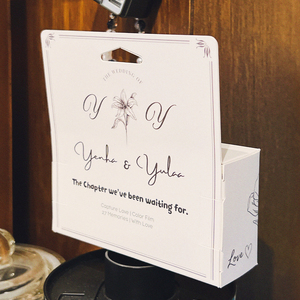 THE WEDDING OF
Y Y
Yenha & Yulaa
The Chapter we've been waiting for.
Love